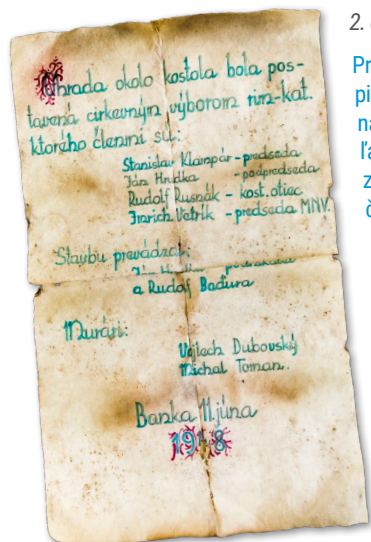 Ohrada okolo kostola bola pos-
tavená cirkevným výborom rím-kat.
ktorého členmi sú:
Stanislav Klampár - predseda
Ján Hrdka - podpredseda
Rudolf Rusnák - kost. otiec
Imrich Vetrík - predseda MNV.
Stavbu prevádzal:
Ján
a Rudolf Baďura
Murári:
Vojtech Dubovský
Michal Toman.
Banka 11. júna
1948
2.
Pr
pi
na
ľa
z
č